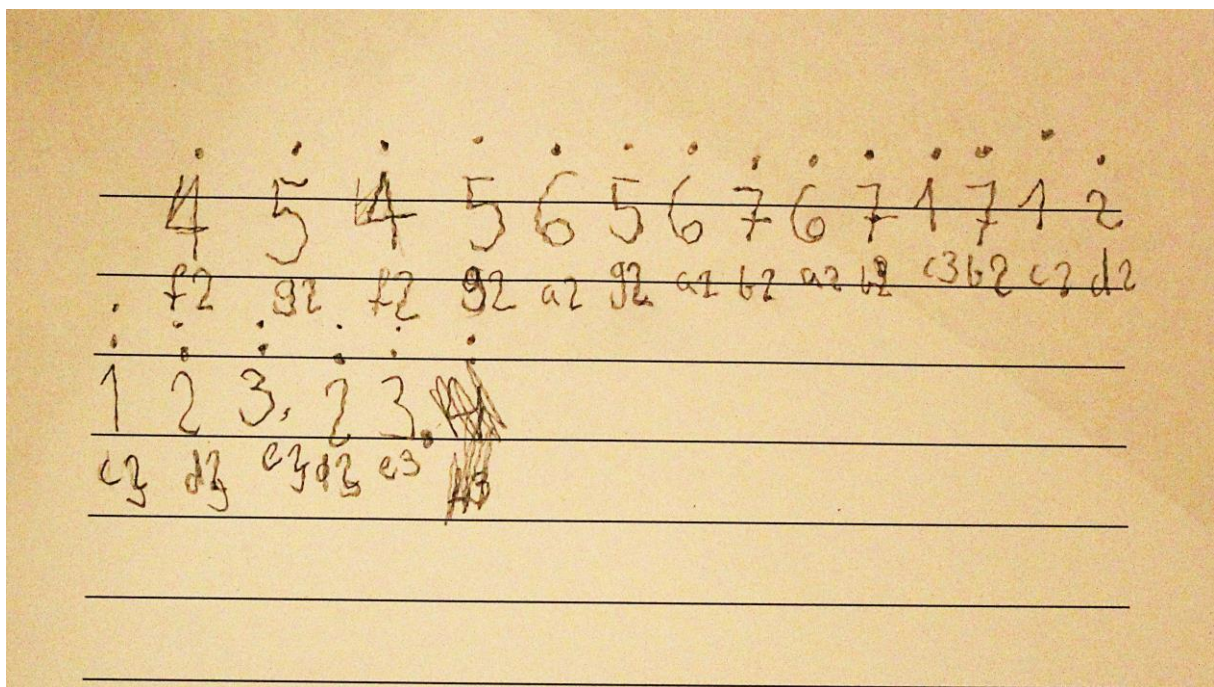 4 5 4 5 6 5 6 7 6 7 1 7 1 2
f2 g2 f2 g2 a2 g2 a2 b2 a2 b2 c3 b2 c2 d2
1 2 3, 2 3.
c3 d3 e3 d3 e3